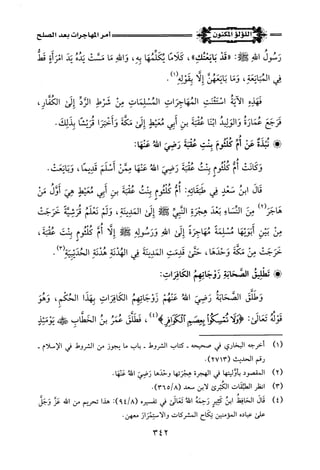 اللؤلؤ المكنون
أمر المهاجرات بعد الصلح
رَسُولُ اللهِ ﷺ: «قَدْ بَايَعْتُكِ»، كَلَامًا يُكَلِّمُهَا بِهِ، وَاللهِ مَا مَسَّتْ يَدُهُ يَدَ امْرَأَةٍ قَطُّ
فِي الْمُبَايَعَةِ، وَمَا بَايَعَهُنَّ إِلَّا بِقَوْلِهِ (١).
فَهَذِهِ الْآيَةُ اسْتَثْنَتِ الْمُهَاجِرَاتِ الْمُسْلِمَاتِ مِنْ شَرْطِ الرَّدِّ إِلَى الْكُفَّارِ،
فَرَجَعَ عُمَارَةُ وَالْوَلِيدُ ابْنَا عُقْبَةَ بنِ أَبِي مُعَيْطٍ إِلَى مَكَّةَ وَأَخْبَرَا قُرَيْشًا بِذَلِكَ.
◉ نُبْذَةٌ عَنْ أُمِّ كُلْثُومٍ بِنْتِ عُقْبَةَ رَضِيَ اللهُ عَنْهَا:
وَكَانَتْ أُمُّ كُلْثُومٍ بِنْتُ عُقْبَةَ رَضِيَ اللهُ عَنْهَا مِمَّنْ أَسْلَمَ قَدِيمًا، وَبَايَعَتْ.
قَالَ ابنُ سَعْدٍ فِي طَبَقَاتِهِ: أُمُّ كُلْثُومٍ بِنْتُ عُقْبَةَ بنِ أَبِي مُعَيْطٍ هِيَ أَوَّلُ مَنْ
هَاجَرَ (٢) مِنَ النِّسَاءِ بَعْدَ هِجْرَةِ النَّبِيِّ ﷺ إِلَى الْمَدِينَةِ، وَلَمْ نَعْلَمْ قُرَشِيَّةً خَرَجَتْ
مِنْ بَيْنِ أَبَوَيْهَا مُسْلِمَةً مُهَاجِرَةً إِلَى اللهِ وَرَسُولِهِ ﷺ إِلَّا أُمَّ كُلْثُومٍ بِنْتَ عُقْبَةَ،
خَرَجَتْ مِنْ مَكَّةَ وَحْدَهَا، حَتَّى قَدِمَتِ الْمَدِينَةَ فِي الْهُدْنَةِ هُدْنَةِ الْحُدَيْبِيَةِ (٣).
◉ تَطْلِيقُ الصَّحَابَةِ زَوْجَاتِهِمُ الْكَافِرَاتِ:
وَطَلَّقَ الصَّحَابَةُ رَضِيَ اللهُ عَنْهُمْ زَوْجَاتِهِمُ الْكَافِرَاتِ بِهَذَا الْحُكْمِ، وَهُوَ
قَوْلُهُ تَعَالَى: ﴿وَلَا تُمْسِكُوا بِعِصَمِ الْكَوَافِرِ﴾ (٤)، فَطَلَّقَ عُمَرُ بنُ الْخَطَّابِ ﷺ يَوْمَئِذٍ
(١) أخرجه البخاري في صحيحه - كتاب الشروط - باب ما يجوز من الشروط في الإسلام -
رقم الحديث (٢٧١٣).
(٢) المقصود بأوليتها في الهجرة هجرتها وحدها رَضِيَ اللهُ عَنْهَا.
(٣) انظر الطَّبقات الكُبْرى لابن سعد (٣٦٥/٨).
(٤) قَالَ الحَافِظُ ابنُ كَثِيرٍ رَحِمَهُ اللهُ تَعَالَى في تفسيره (٩٤/٨): هذا تحريم من الله عَزَّ وَجَلَّ
على عباده المؤمنين نِكَاح المشركات والاسْتِمْرَارَ معهن.
٣٤٢